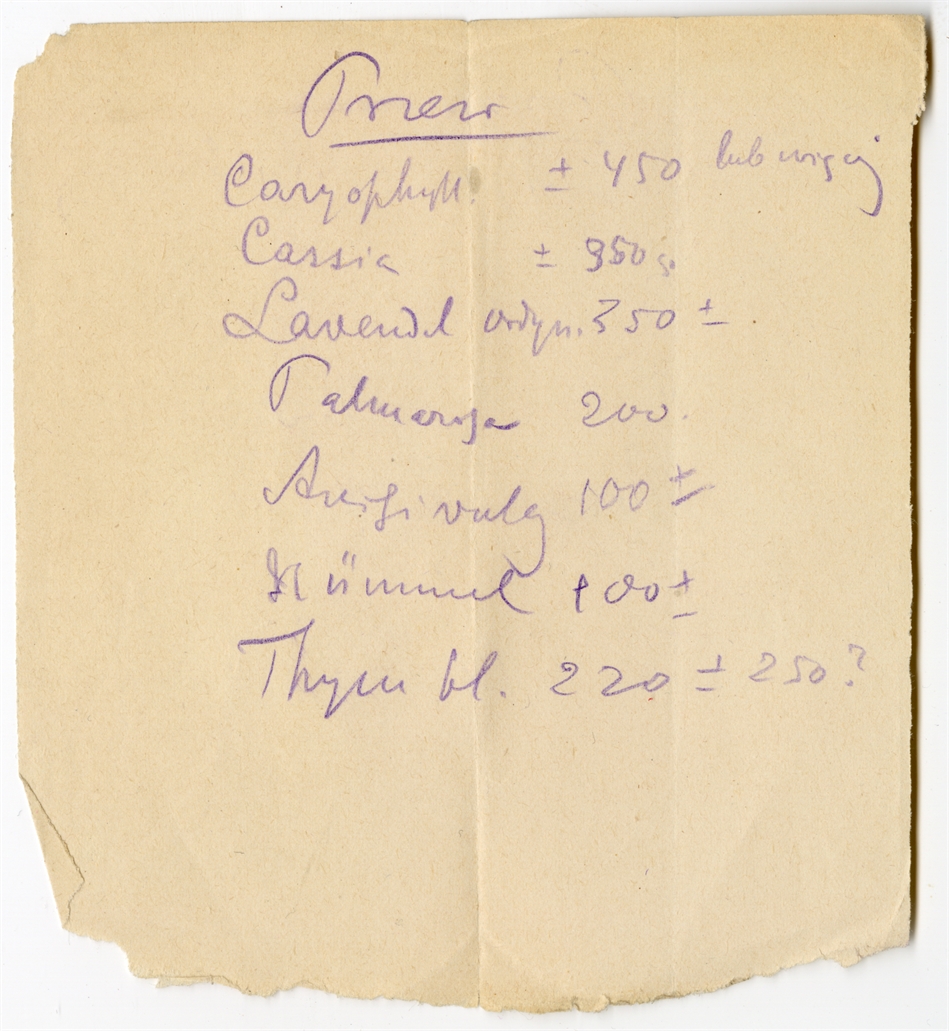 Caryophyll. ± 450 lub więcej
Cassia ± 350 g.
Lavendel ordyn. 350 ±
Palmarosa 200.
Anisi vulg 100 ±
Kümmel 100 ±
Thym bl. 220 ± 250?